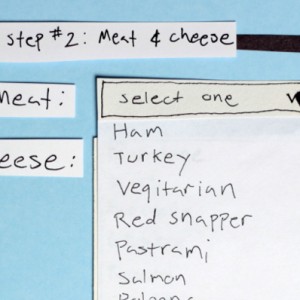 step #2: Meat & cheese
Meat:
select one
eese:
Ham
Turkey
Vegitarian
Red snapper
Pastrami
Salmon